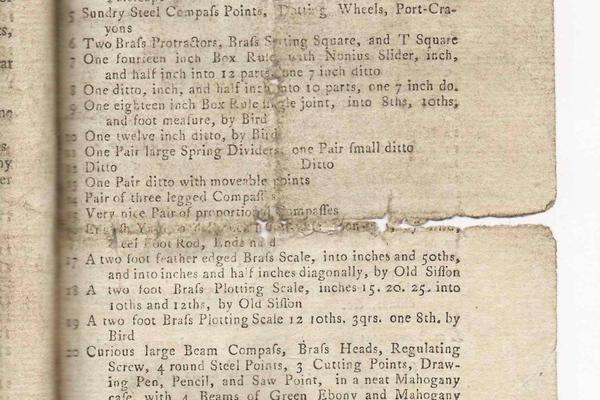 5 Sundry Steel Compaſs Points, Dotting Wheels, Port-Cra-
yons
6 Two Braſs Protractors, Braſs Setting Square, and T Square
7 One fourteen inch Box Rule with Nonius Slider, inch,
and half inch into 12 parts, one 7 inch ditto
8 One ditto, inch, and half inch into 10 parts, one 7 inch do.
9 One eighteen inch Box Rule ſingle joint, into 8ths, 10ths,
and foot meaſure, by Bird
10 One twelve inch ditto, by Bird
11 One Pair large Spring Dividers, one Pair ſmall ditto
12 Ditto Ditto
13 One Pair ditto with moveable points
14 Pair of three legged Compaſſes
15 Very nice Pair of proportional Compaſſes
Engliſh
Steel Foot Rod, Ends
17 A two foot feather edged Braſs Scale, into inches and 50ths,
and into inches and half inches diagonally, by Old Siſſon
18 A two foot Braſs Plotting Scale, inches 15. 20. 25. into
10ths and 12ths, by Old Siſſon
19 A two foot Braſs Plotting Scale 12 10ths. 3qrs. one 8th. by
Bird
20 Curious large Beam Compaſs, Braſs Heads, Regulating
Screw, 4 round Steel Points, 3 Cutting Points, Draw-
ing Pen, Pencil, and Saw Point, in a neat Mahogany
caſe, with 4 Beams of Green Ebony and Mahogany